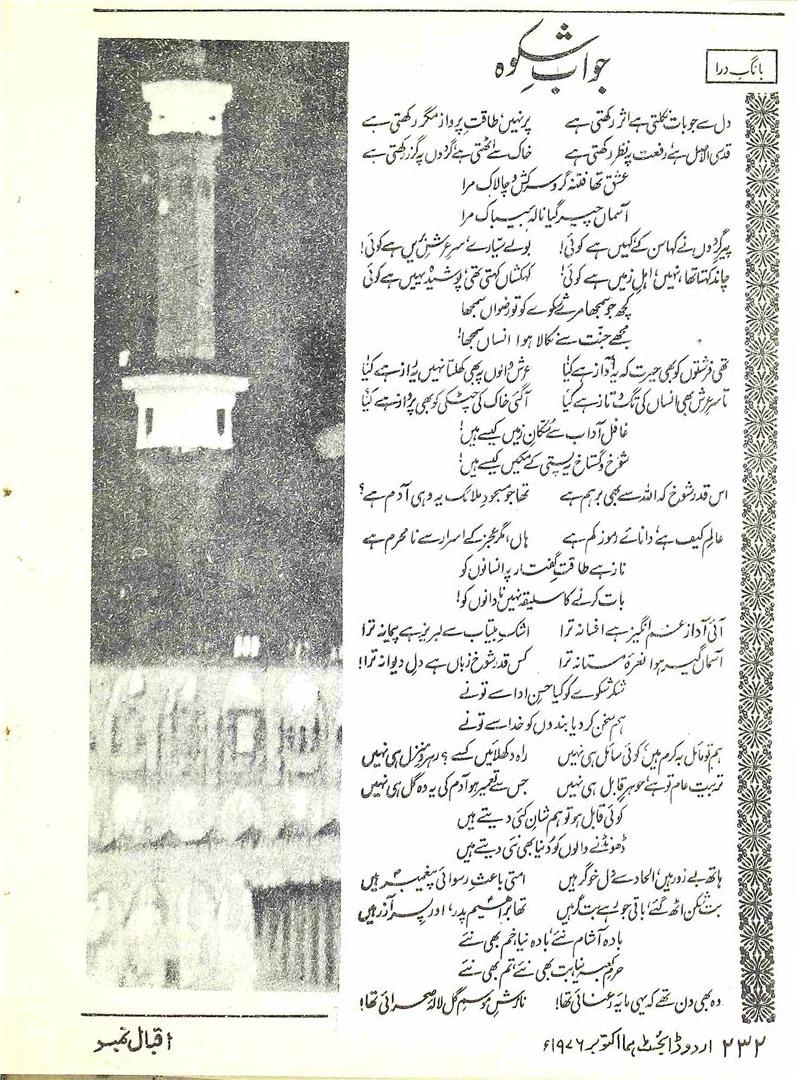 بانگِ درا
جوابِ شکوہ
دل سے جو بات نکلتی ہے اثر رکھتی ہے پر نہیں، طاقتِ پرواز مگر رکھتی ہے
قدسی الاصل ہے، رفعت پہ نظر رکھتی ہے خاک سے اُٹھتی ہے، گردُوں پہ گزر رکھتی ہے
عشق تھا فتنہ گر و سرکش و چالاک مرا
آسماں چیر گیا نالۂ بیباک مرا
پیرِ گردُوں نے کہا سُن کے، کہیں ہے کوئی! بولے سیارے، سرِ عرشِ بریں ہے کوئی!
چاند کہتا تھا، نہیں، اہلِ زمیں ہے کوئی! کہکشاں کہتی تھی، پوشیدہ یہیں ہے کوئی
کچھ جو سمجھا مرے شکوے کو تو رضواں سمجھا
مجھے جنت سے نکالا ہوا انساں سمجھا!
تھی فرشتوں کو بھی حیرت کہ یہ آواز ہے کیا! عرش والوں پہ بھی کھلتا نہیں یہ راز ہے کیا
تا سرِ عرش بھی انساں کی تگ و تاز ہے کیا آگئی خاک کی چٹکی کو بھی پرواز ہے کیا
غافل آداب سے سُکّانِ زمیں کیسے ہیں!
شوخ و گستاخ یہ پستی کے مکیں کیسے ہیں!
اس قدر شوخ کہ اللہ سے بھی برہم ہے تھا جو مسجودِ ملائک یہ وہی آدم ہے؟
عالمِ کیف ہے، دانائے رموزِ کم ہے ہاں، مگر عجز کے اسرار سے نامحرم ہے
ناز ہے طاقتِ گفتار پہ انسانوں کو
بات کرنے کا سلیقہ نہیں نادانوں کو!
آئی آواز غم انگیز ہے افسانہ ترا اشکِ بیتاب سے لبریز ہے پیمانہ ترا
آسماں گیر ہوا نعرۂ مستانہ ترا کس قدر شوخ زباں ہے دلِ دیوانہ ترا!
شکر شکوے کو کیا حُسنِ ادا سے تو نے
ہم سخن کر دیا بندوں کو خدا سے تو نے
ہم تو مائل بہ کرم ہیں، کوئی سائل ہی نہیں راہ دکھلائیں کسے؟ رہروِ منزل ہی نہیں
تربیت عام تو ہے، جوہرِ قابل ہی نہیں جس سے تعمیر ہو آدم کی یہ وہ گِل ہی نہیں
کوئی قابل ہو تو ہم شانِ کئی دیتے ہیں
ڈھونڈنے والوں کو دُنیا بھی نئی دیتے ہیں
ہاتھ بے زور ہیں، الحاد سے دل خوگر ہیں امتی باعثِ رسوائیِ پیغمبر ہیں
بت شکن اٹھ گئے، باقی جو رہے بت گر ہیں تھا براہیم پدر، اور پسر آذر ہیں
بادہ آشام نئے، بادہ نیا، خم بھی نئے
حرمِ کعبہ نیا، بت بھی نئے، تم بھی نئے
وہ بھی دن تھے کہ یہی مایۂ رعنائی تھا! نازشِ موسمِ گل لالۂ صحرائی تھا!
۲۳۲ اردو ڈائجسٹ ہما اکتوبر ۱۹۷۶ء
اقبال نمبر